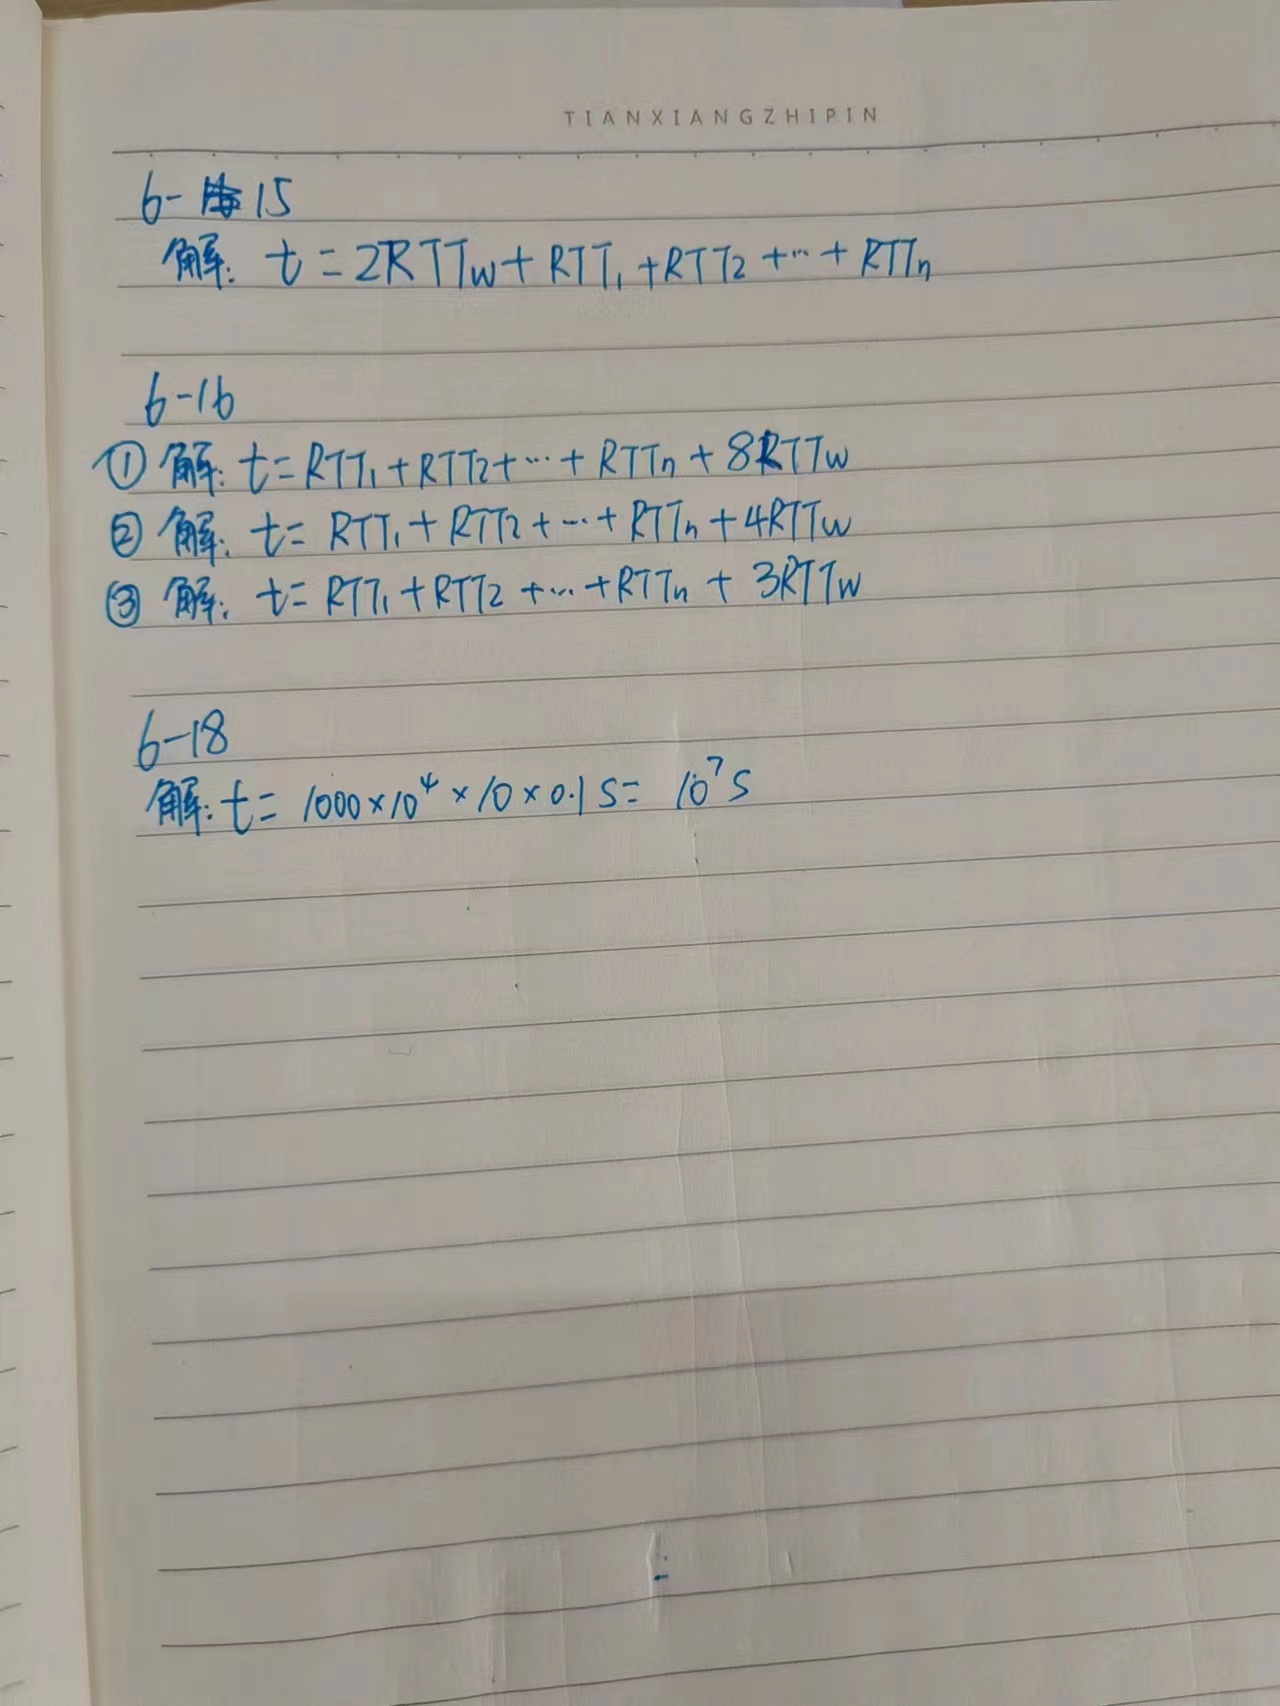 TIANXIANGZHIPIN
6-15
解: t = 2RTTw + RTT₁ + RTT2 + ... + RTTn
6-16
① 解: t = RTT₁ + RTT2 + ... + RTTn + 8RTTw
② 解: t = RTT₁ + RTT2 + ... + RTTn + 4RTTw
③ 解: t = RTT₁ + RTT2 + ... + RTTn + 3RTTw
6-18
解: t = 1000×10⁴×10×0.1 s = 10⁷s